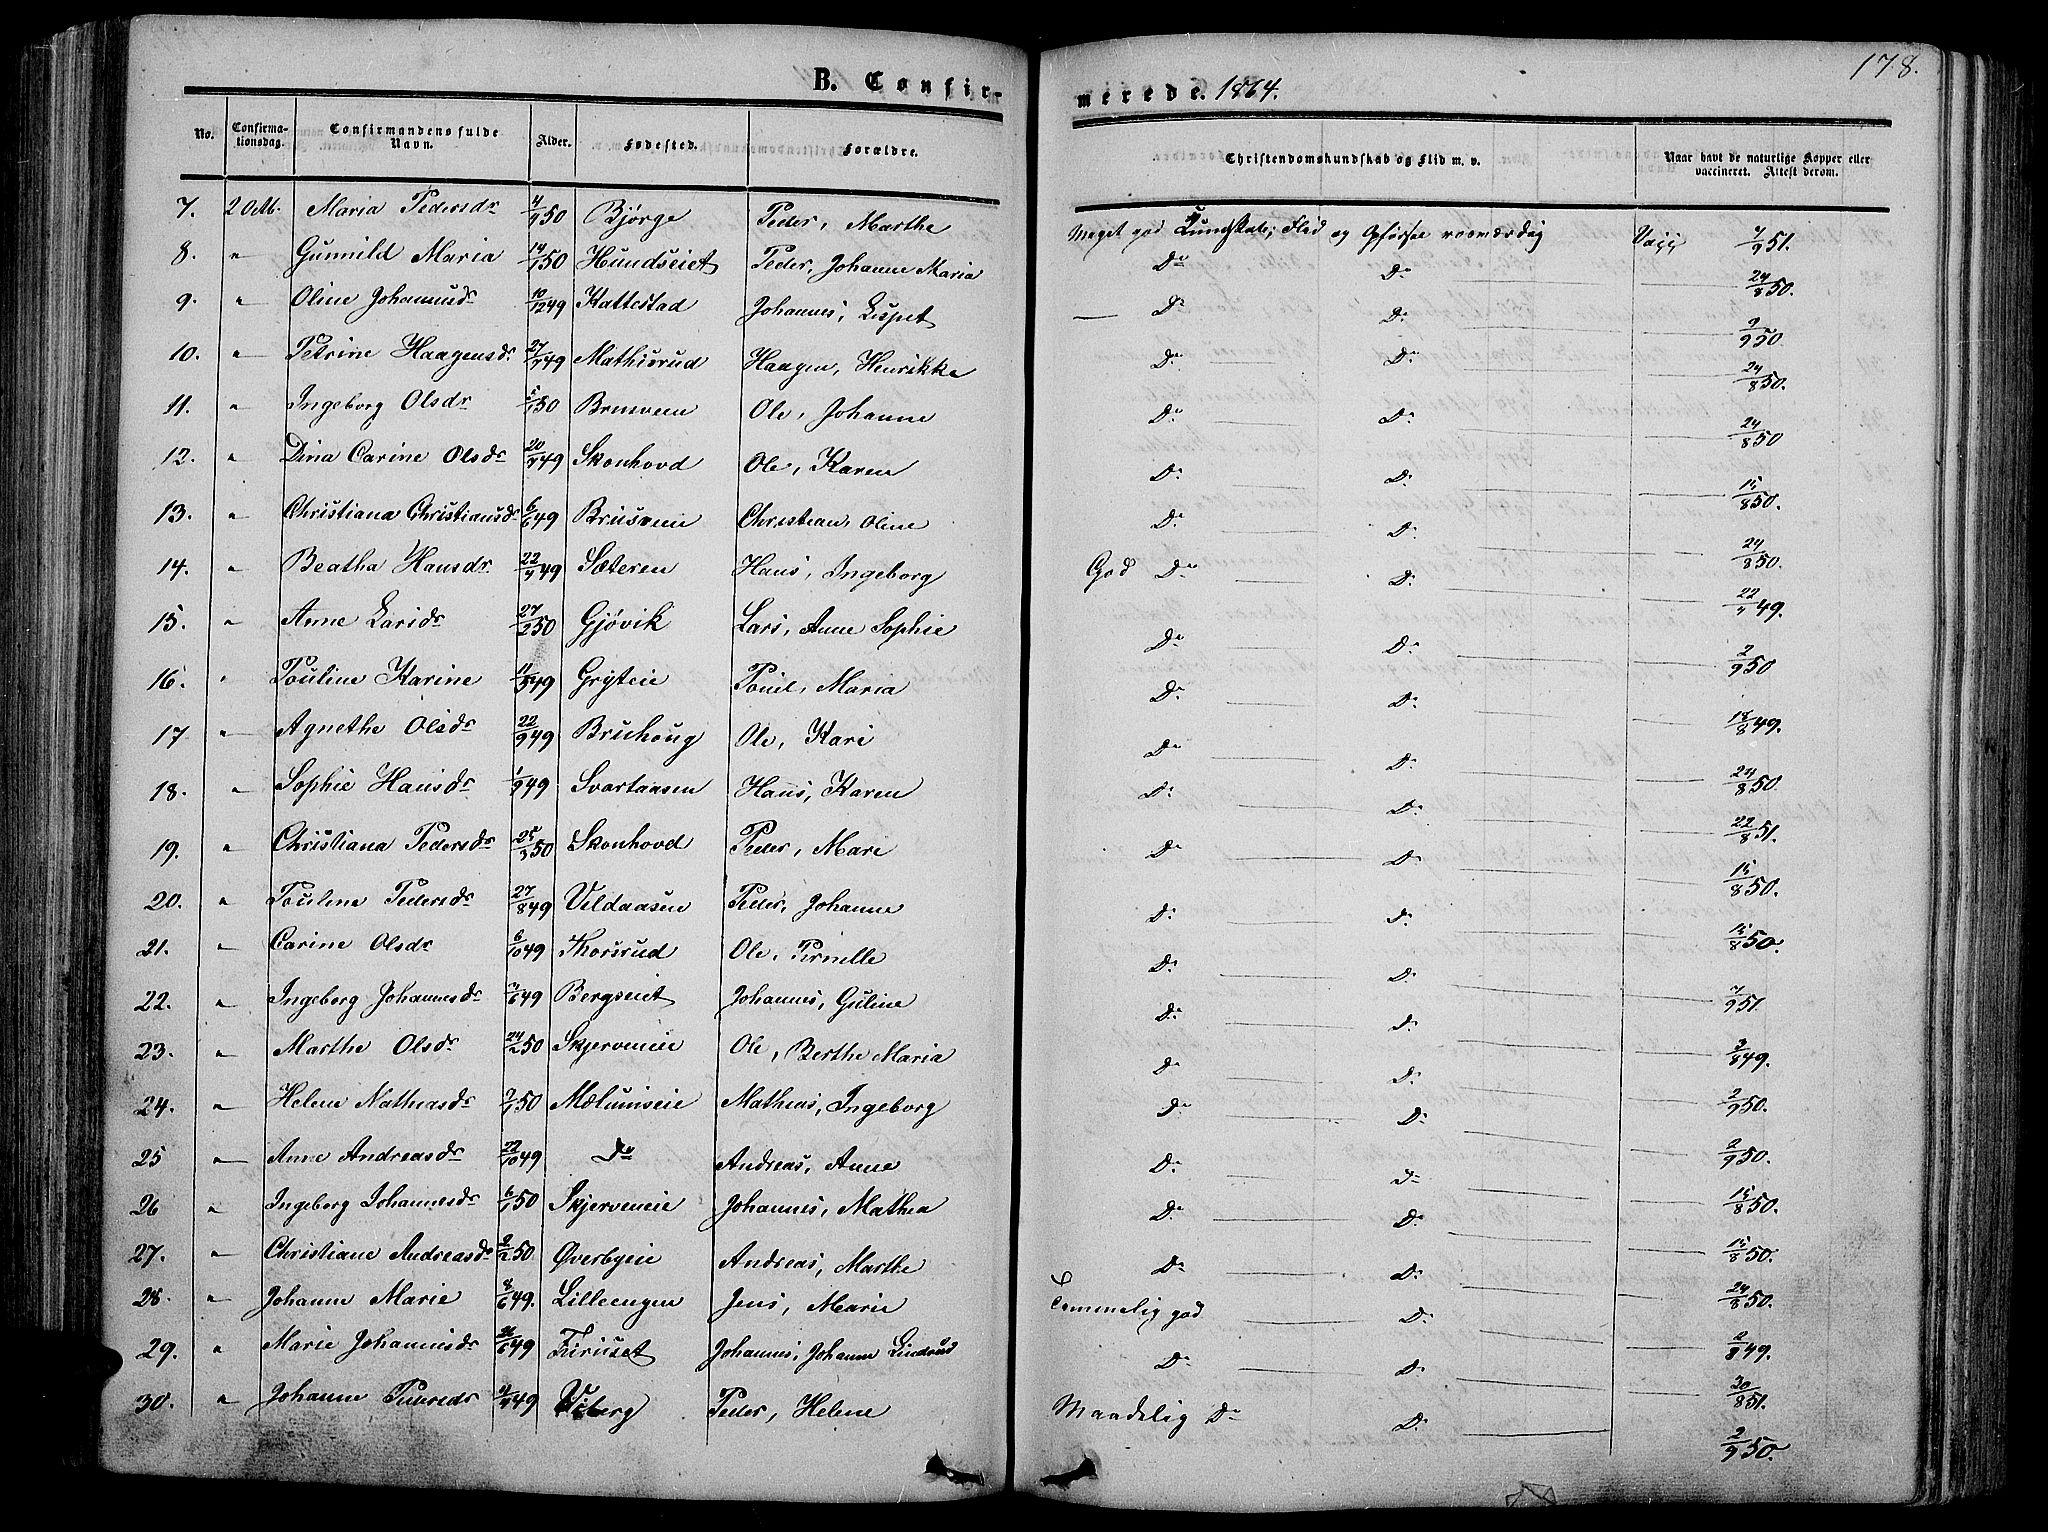 178.
B. Confirmerede. 1864.
No. Confirmationsdag. Confirmandens fulde Navn. Alder. Fødested. Forældre. Christendomskundskab og Flid m. v. Naar havt de naturlige Kopper eller vaccineret. Attest derom.
7. 2 Oct. Maria Pedersdr 50 Bjørge Peder, Marthe Meget god Kundskab, Flid og Opførsel rosværdig Vacc 7/9 51.
8. " Gunnild Maria 14/1 50 Hundseiet Peder, Johanne Maria Do Do 24/8 50.
9. " Oline Johannesdr 10/12 49 Kattestad Johannes, Lispet — Do Do 2/9 50
10. " Petrine Haagensdr 49 Mathisrud Haagen, Henrikke Do Do 24/8 50.
11. " Ingeborg Olsdr 50 Brusveen Ole, Johanne Do Do 24/8 50
12. " Dina Carine Olsdr 49 Skonhovd Ole, Karen Do Do 15/8 50.
13. " Christiana Christiansdr 6/6 49 Brusveen Christian, Oline Do Do 24/8 50.
14. " Beatha Hansdr 49 Sæteren Hans, Ingeborg God Do Do 49.
15. " Anne Larsdr 27/2 50 Gjøvik Lars, Anne Sophie Do Do 2/9 50
16. " Pouline Karine 49 Gryteie Pouel, Maria Do Do 18/8 49.
17 " Agnethe Olsdr 22/9 49 Bruhoug Ole, Kari Do Do 24/8 50.
18. " Sophie Hansdr 1/9 49 Svartaasen Hans, Karen Do Do 22/8 51.
19. " Christiana Pedersdr 25/3 50 Skonhovd Peder, Mari Do Do 15/8 50.
20. " Pouline Pedersdr 27/8 49 Veldaasen Peder, Johanne Do Do 15/8 50.
21. " Carine Olsdr 6/10 49 Thorsrud Ole, Pernille Do Do 7/9 51.
22. " Ingeborg Johannesdr 49 Bergseiet Johannes, Guline Do Do 3/8 49.
23. " Marthe Olsdr 24/2 50 Skjerveneie Ole, Berthe Maria Do Do 2/9 50.
24. " Helene Mathiasdr 50 Mælumseie Mathias, Ingeborg Do Do 2/9 50.
25 " Anne Andreasdr 22/10 49 Do Andreas, Anne Do Do 15/8 50.
26 " Ingeborg Johannesdr 6/1 50 Skjerveneie Johannes, Mathea Do Do 15/8 50.
27. " Christiane Andreasdr 2/2 50. Øverbyeie Andreas, Marthe Do Do 24/8 50.
28. " Johanne Marie 8/6 49. Lilleengen Jens, Marie Temmelig god Do 2/8 49.
29. " Marie Johannesdr 49 Furuset Johannes, Johanne Lindrud Do Do 30/8 51.
30. " Johanne 49 Viberg Peder, Helene Maadelig Do Do 2/9 50.